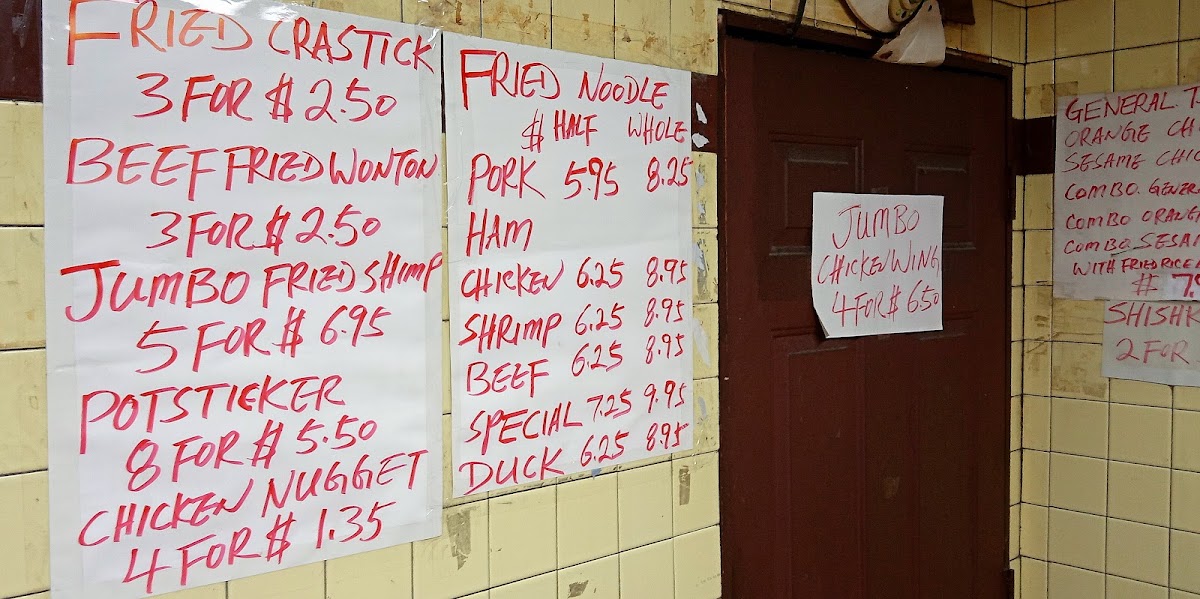 FRIED CRASTICK
3 FOR $ 2.50
BEEF FRIED WONTON
3 FOR $ 2.50
JUMBO FRIED SHIMP
5 FOR $ 6.95
POTSTICKER
8 FOR $ 5.50
CHICKEN NUGGET
4 FOR $ 1.35
FRIED NOODLE
$ HALF WHOLE
PORK 5.95 8.25
HAM
CHICKEN 6.25 8.95
SHRIMP 6.25 8.95
BEEF 6.25 8.95
SPECIAL 7.25 9.95
DUCK 6.25 8.95
JUMBO
CHICKEN WING
4 FOR $ 6.50
GENERAL
ORANGE
SESAME
COMBO.
COMBO
COMBO
WITH FRIED RICE
$
2 FOR